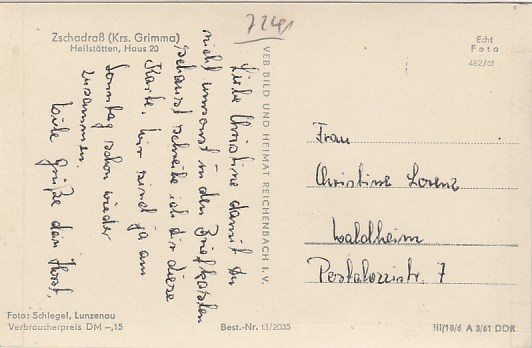 7241
Zschadraß (Krs. Grimma)
Heilstätten, Haus 20
Echt
Foto
482/61
Liebe Christine damit du
nicht umsonst in den Briefkasten
schaust schreibe ich dir diese
Karte. Wir sind ja am
Sonntag schon wieder
zusammen.
Viele Grüße dein Horst.
VEB BILD UND HEIMAT REICHENBACH I. V.
Frau
Christine Lorenz
Waldheim
Pestalozzistr. 7
Foto: Schlegel, Lunzenau
Verbraucherpreis DM –,15
Best.-Nr. 13/2035
III/18/6 A 3/61 DDR